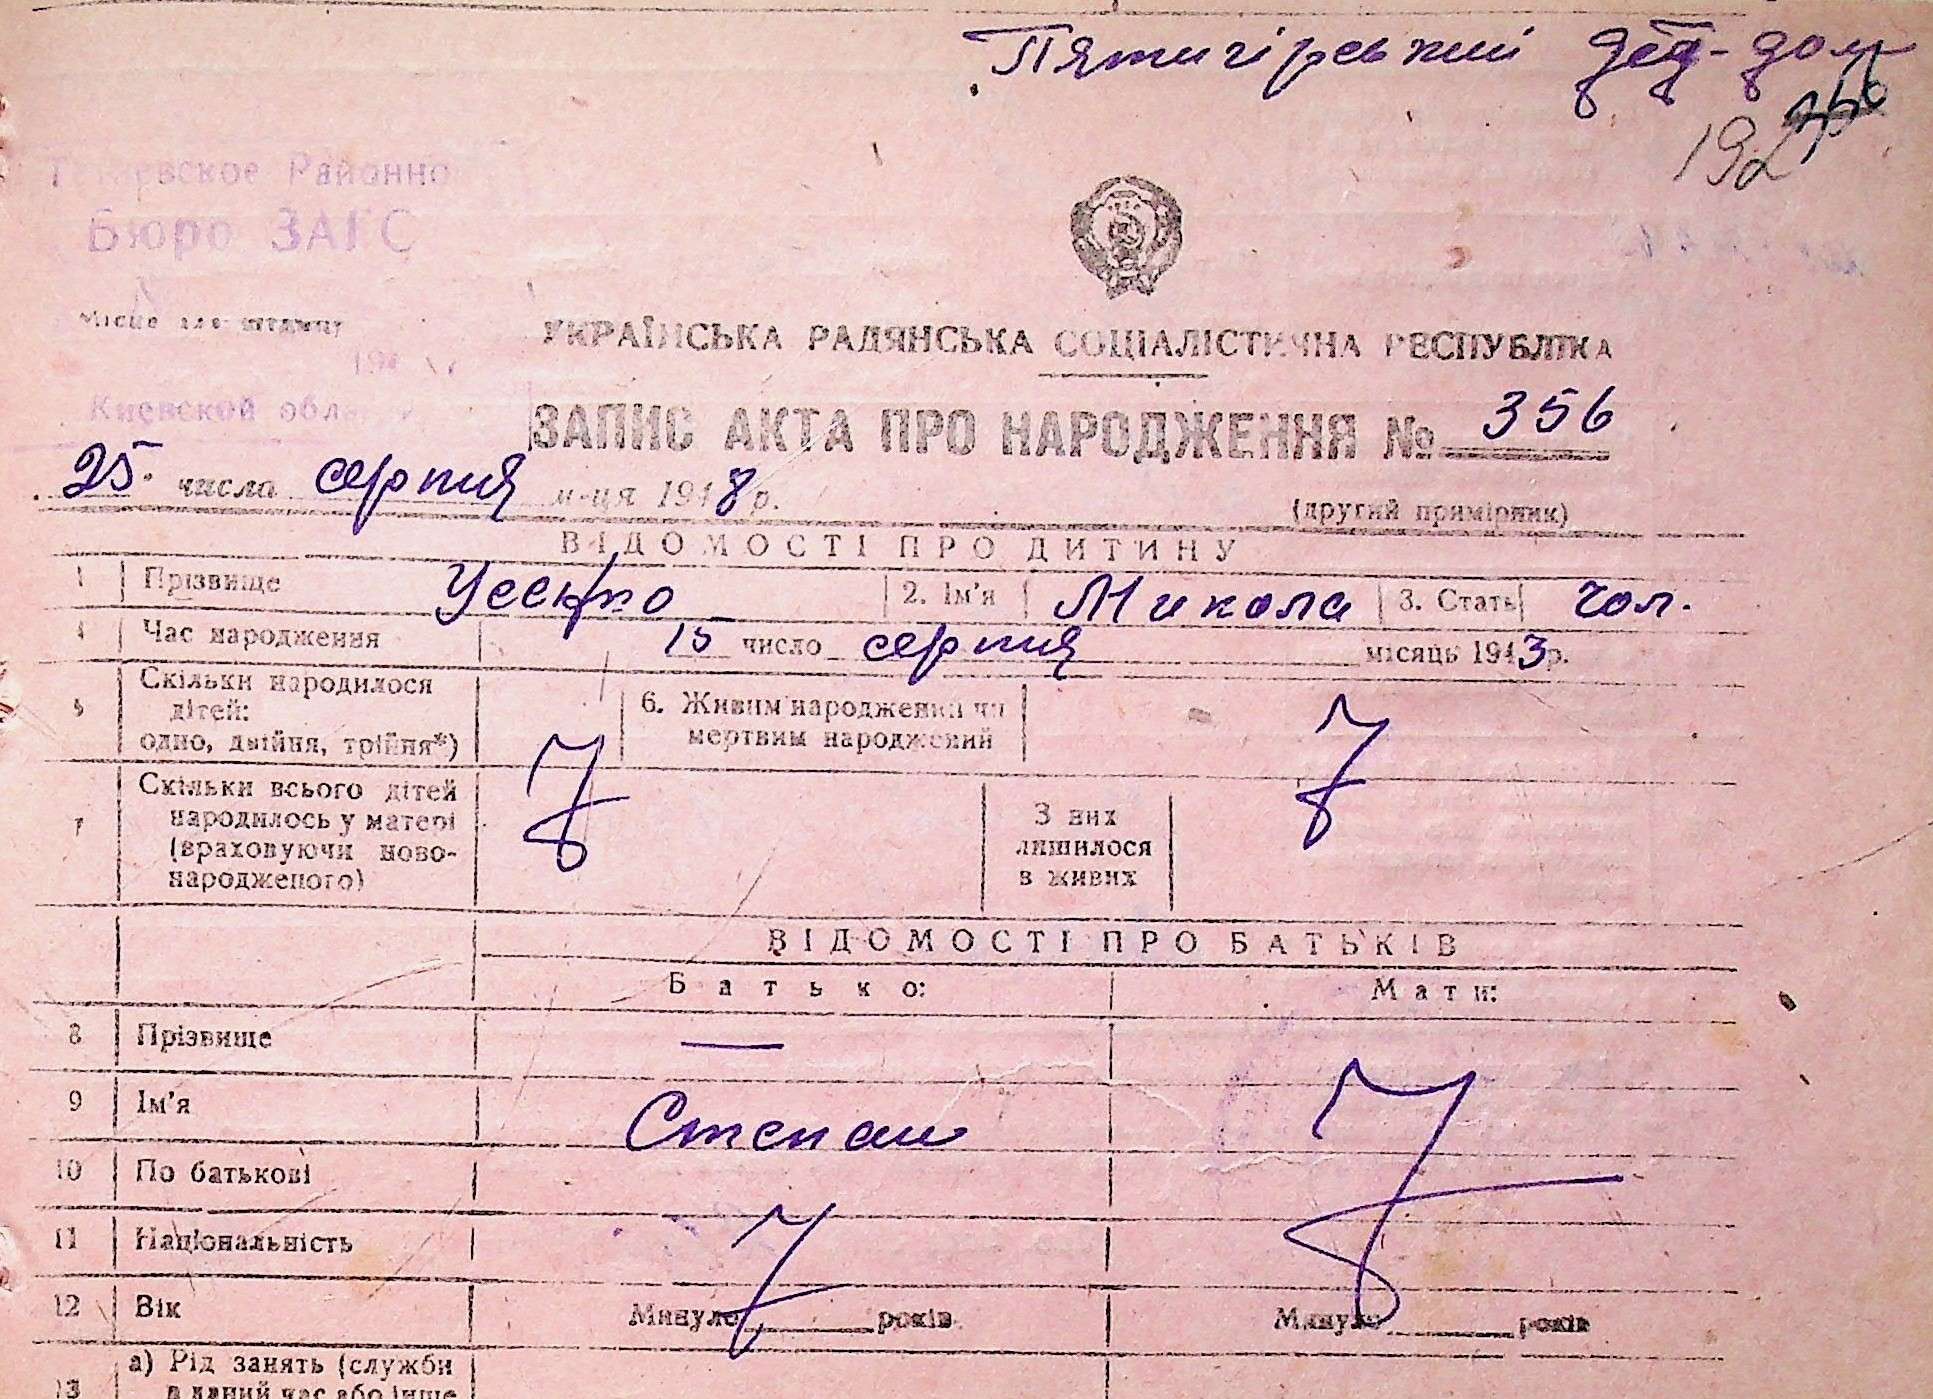 Пятигірський дєд-дом
192
Районно
Бюро ЗАГС
Місце для штампу
Киевской обла
УКРАЇНСЬКА РАДЯНСЬКА СОЦІАЛІСТИЧНА РЕСПУБЛІКА
ЗАПИС АКТА ПРО НАРОДЖЕННЯ № 356
25 числа серпня м-ця 1948 р.
(другий примірник)
ВІДОМОСТІ ПРО ДИТИНУ
1 Прізвище 2. Ім'я Микола 3. Стать чол.
4 Час народження 15 число серпня місяць 1943 р.
5 Скільки народилося дітей: одно, двійня, трійня*) 6. Живим народжений чи мертвим народжений
7 Скільки всього дітей народилось у матері (враховуючи новонародженого) З них лишилося в живих
ВІДОМОСТІ ПРО БАТЬКІВ
Батько: Мати:
8 Прізвище —
9 Ім'я Степан
10 По батькові
11 Національність
12 Вік Минуло років Минуло років
13 а) Рід занять (служби
в даний час або інше